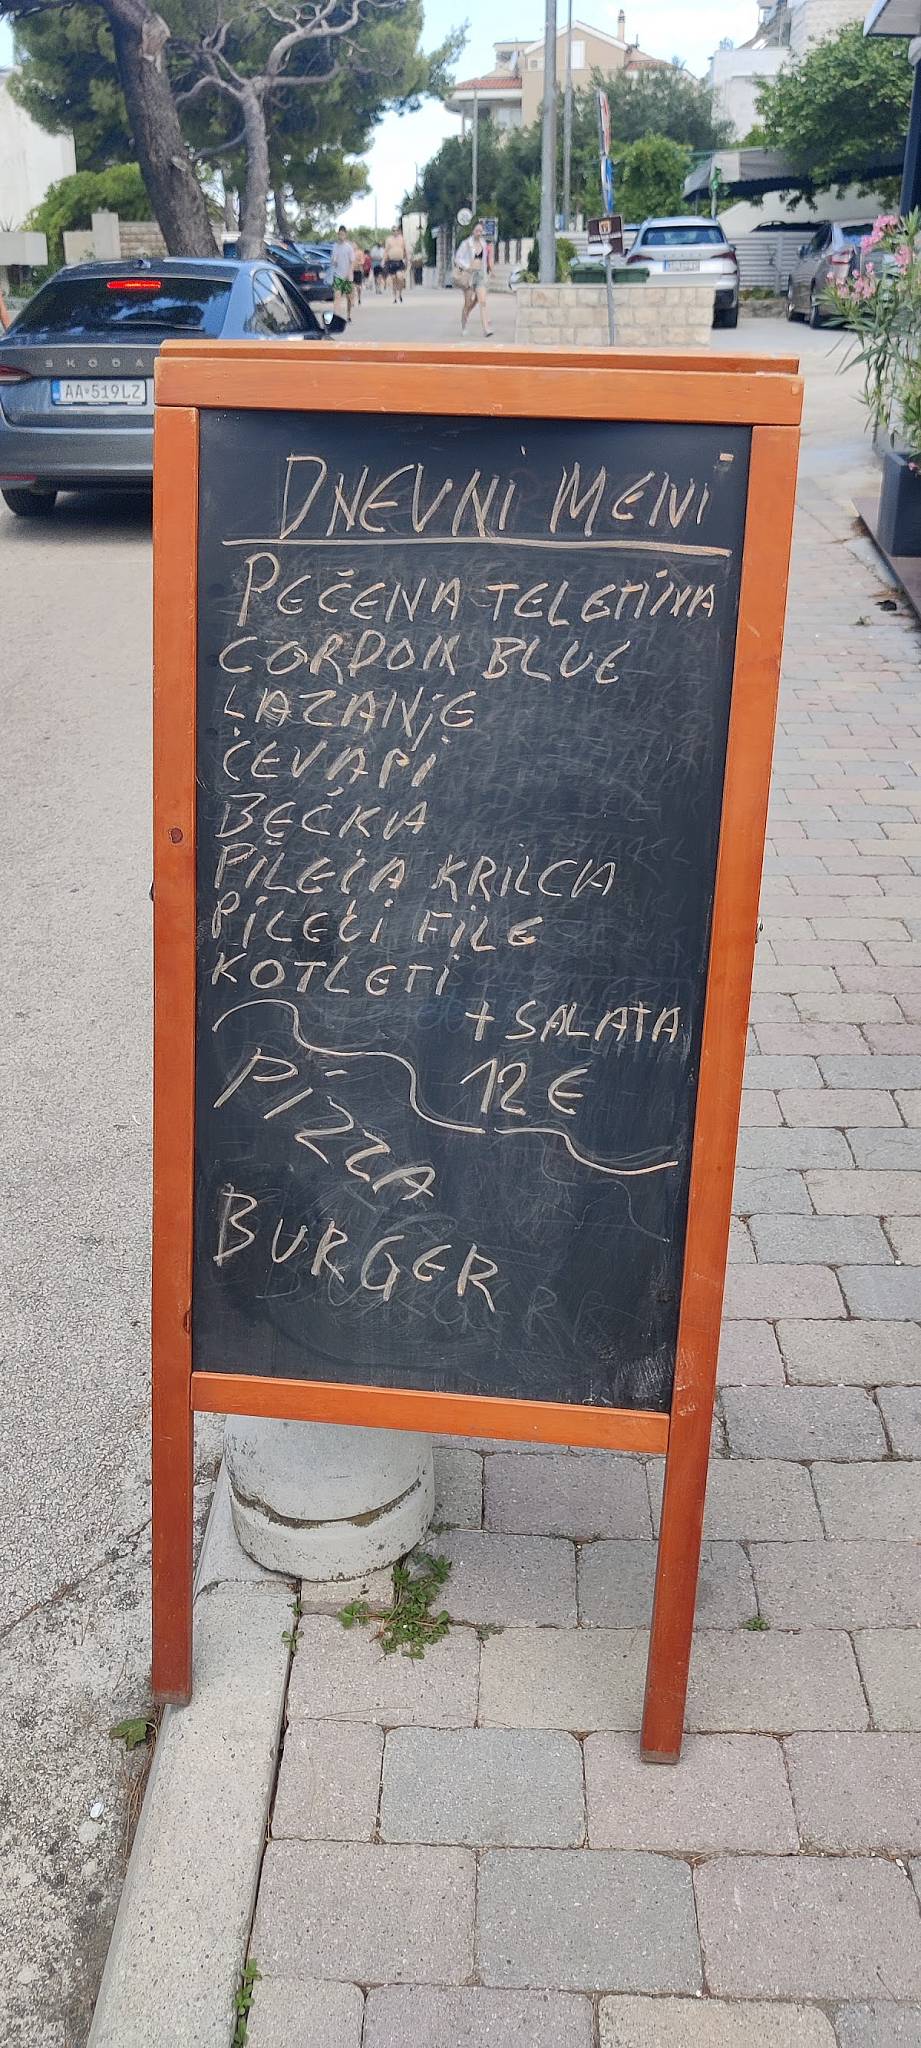 SKODA
AA 519LZ
DNEVNI MENI
PEČENA TELETINA
CORDON BLUE
LAZANJE
ĆEVAPI
BEČKA
PILEĆA KRILCA
PILEĆI FILE
KOTLETI
+ SALATA
12€
PIZZA
BURGER